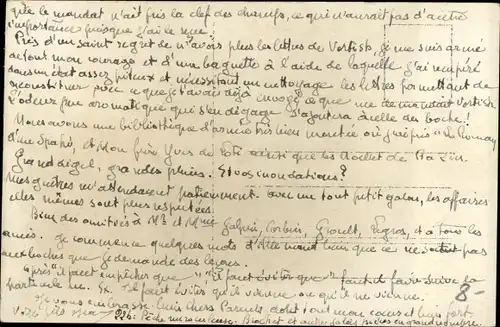 que le mandat n'ait pris la clef des champs, ce qui n'aurait pas d'autre
importance puisque j'ai le reçu.
Pris d'un saint regret de n'avoir plus les lettres de Vertisto, je me suis armé
de tout mon courage et d'une baguette à l'aide de laquelle j'ai repéré
dans un état assez piteux et nécessitant un nettoyage les lettres formettant de
reconstituer avec ce que j'avais déjà envoyé ce que me demandait Vertisto
L'odeur fine aromatique qui s'en dégage s'ajoutera à celle des boches!
Nous avons une bibliothèque d'armée très bien montée où j'ai pris "Le Roman
d'un Spahi, et Mon frère Yves de Loti ainsi que les
Grand dégel, grandes pluies. Et vos inondations?
Mes guêtres m'attendaient patiemment. avec un tout petit galon, les affaires
elles mêmes sont plus respectées.
Bien des amitiés à Mr et Mme Galpin, Corbin, Groult, Legros, et à tous les
amis. Je commence quelques mots d'Allemand bien que ce ne soit pas
aux boches que je demande des leçons.
Après il faut empêcher que, "Il faut éviter que" faut-il faire suivre la
particule ne. Ex. Il faut éviter qu'il vienne ou qu'il ne vienne.
Je vous embrasse bien chers Parents de tout mon cœur et bien fort.
Votre fils
8-